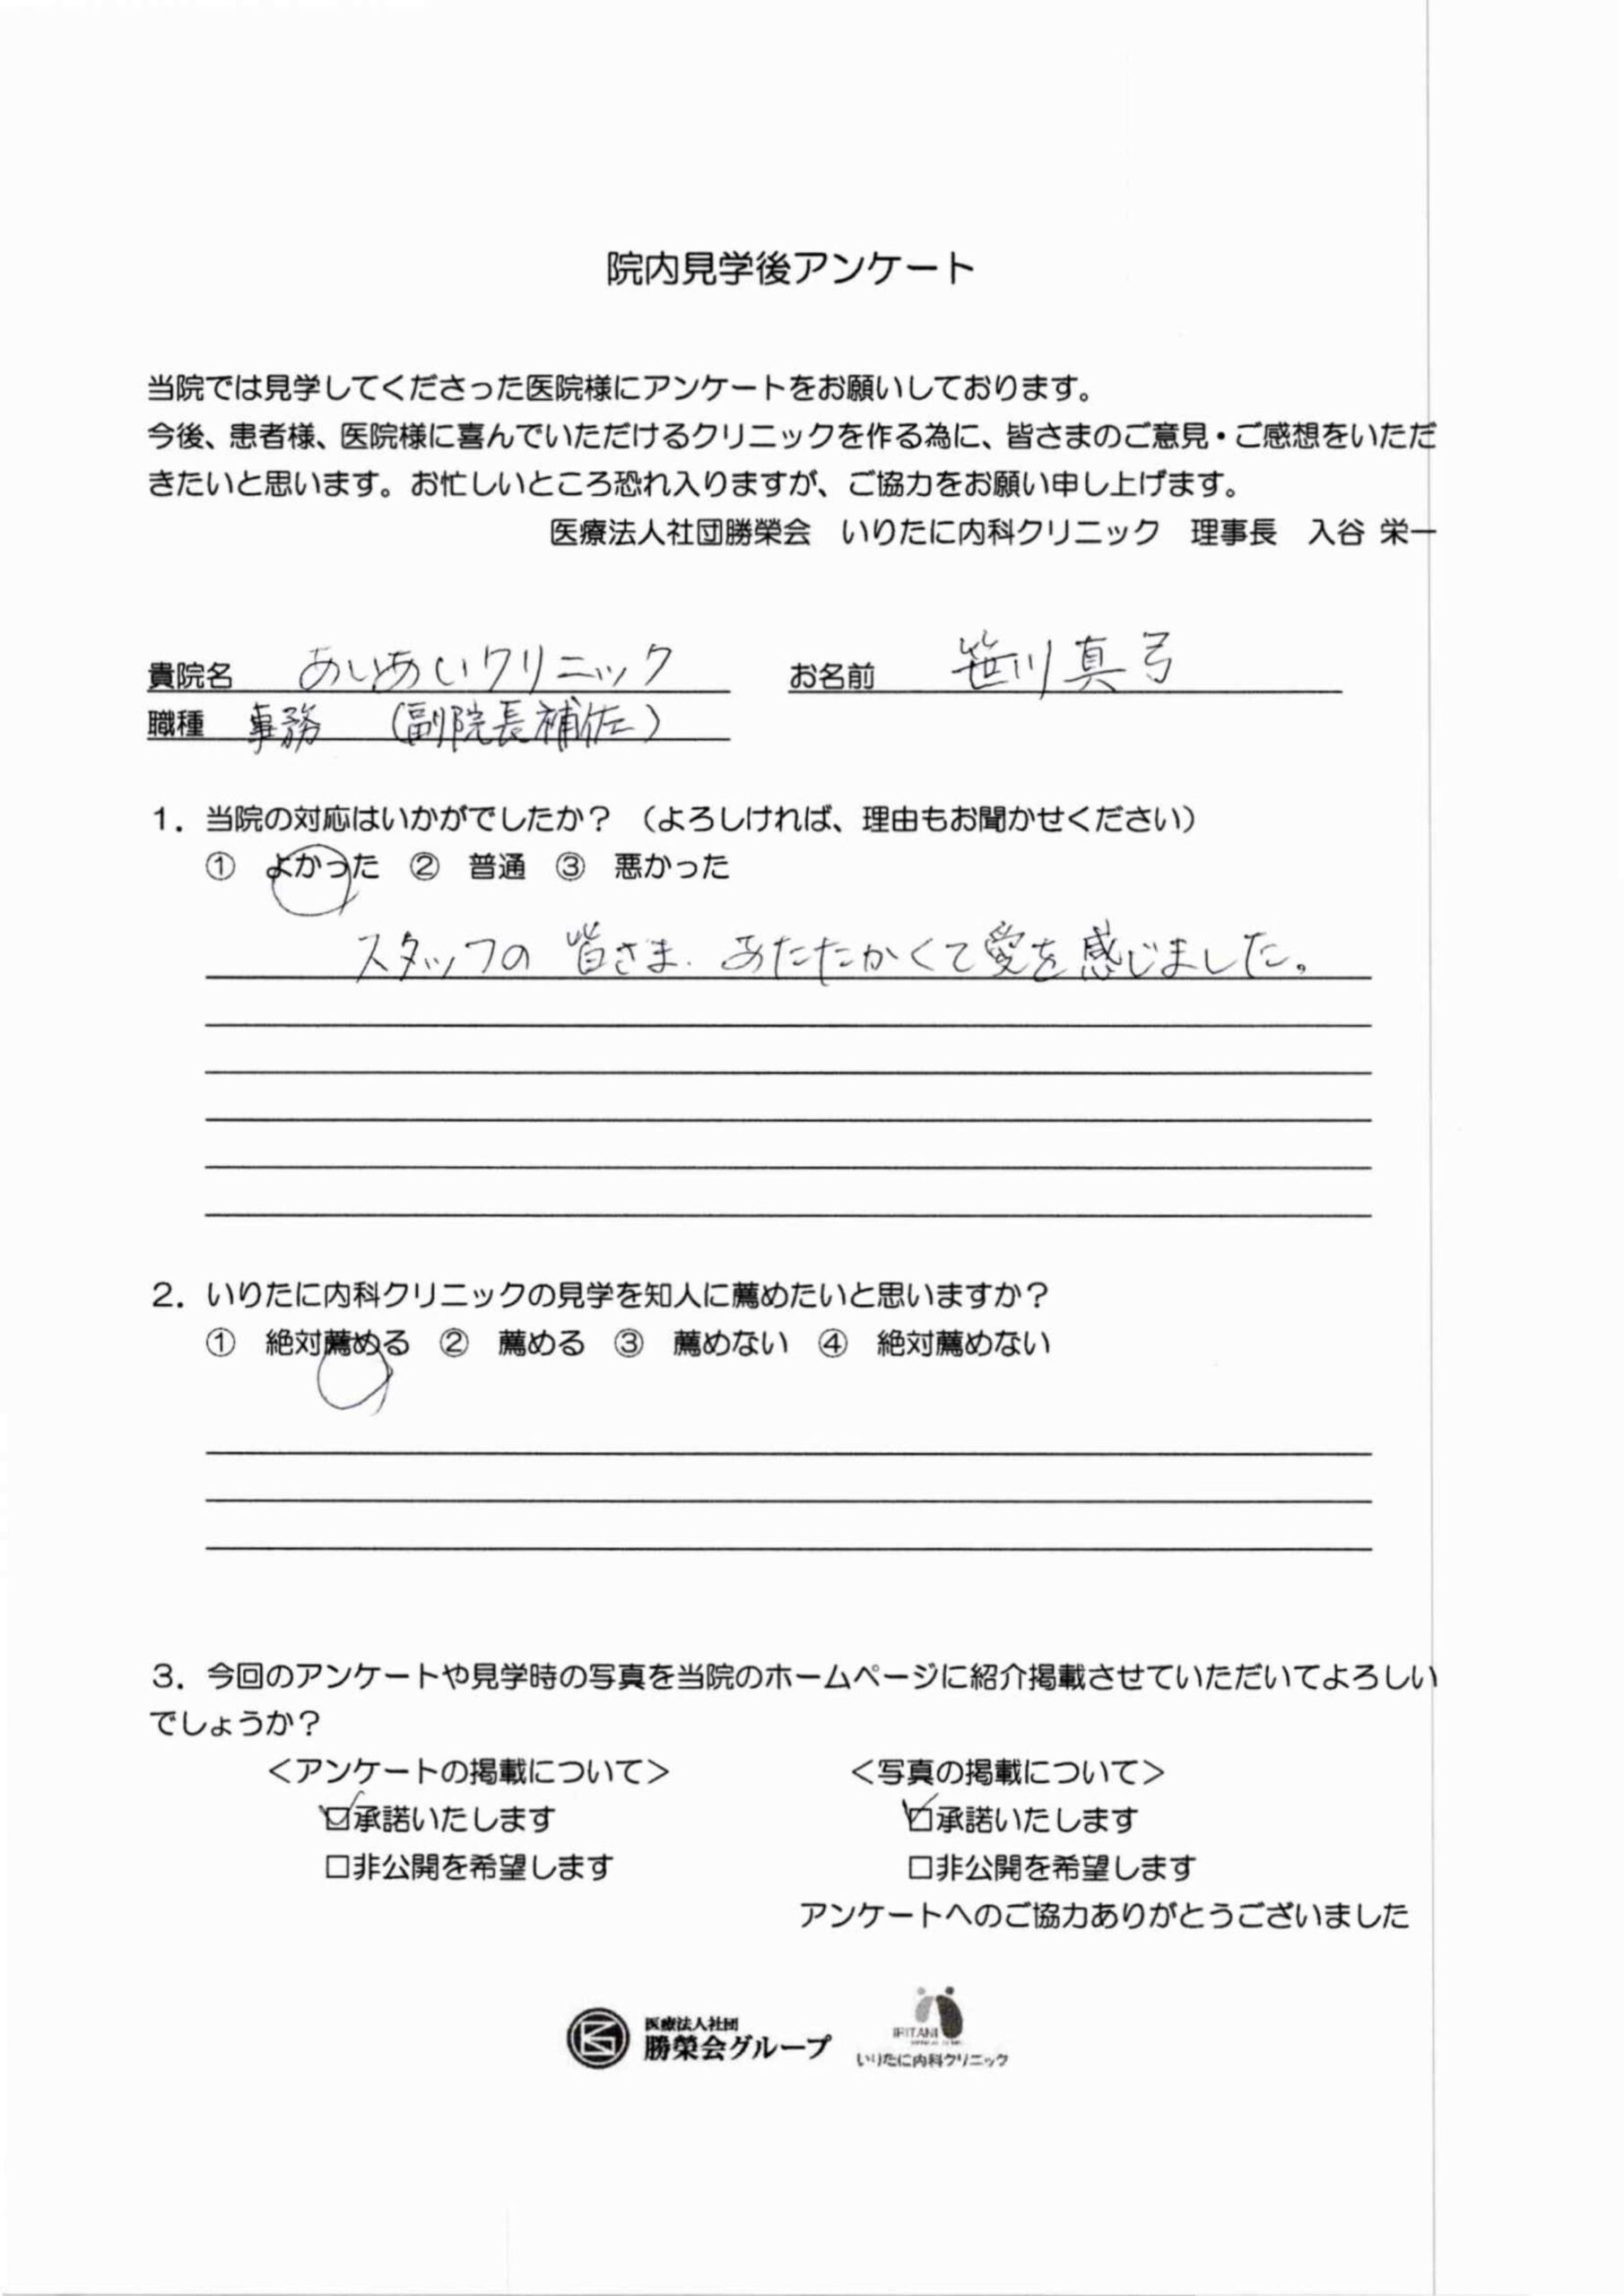 院内見学後アンケート
当院では見学してくださった医院様にアンケートをお願いしております。
今後、患者様、医院様に喜んでいただけるクリニックを作る為に、皆さまのご意見・ご感想をいただ
きたいと思います。お忙しいところ恐れ入りますが、ご協力をお願い申し上げます。
医療法人社団勝榮会　いりたに内科クリニック　理事長　入谷 栄一
貴院名　あいあいクリニック　お名前　笹川真弓
職種　事務　（副院長補佐）
１．当院の対応はいかがでしたか？（よろしければ、理由もお聞かせください）
①　よかった　②　普通　③　悪かった
スタッフの皆さま．あたたかくて愛を感じました。
２．いりたに内科クリニックの見学を知人に薦めたいと思いますか？
①　絶対薦める　②　薦める　③　薦めない　④　絶対薦めない
３．今回のアンケートや見学時の写真を当院のホームページに紹介掲載させていただいてよろしい
でしょうか？
＜アンケートの掲載について＞　＜写真の掲載について＞
☑承諾いたします　☑承諾いたします
□非公開を希望します　□非公開を希望します
アンケートへのご協力ありがとうございました
医療法人社団
勝榮会グループ
IRITANI
いりたに内科クリニック